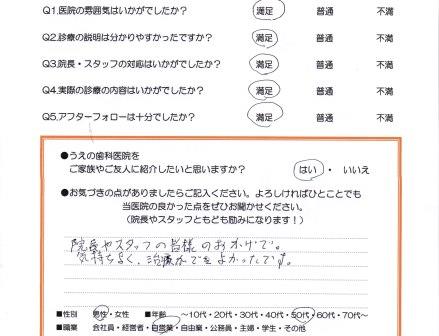 Q1.医院の雰囲気はいかがでしたか? 満足 普通 不満
Q2.診療の説明は分かりやすかったですか? 満足 普通 不満
Q3.院長・スタッフの対応はいかがでしたか? 満足 普通 不満
Q4.実際の診療の内容はいかがでしたか? 満足 普通 不満
Q5.アフターフォローは十分でしたか? 満足 普通 不満
●うえの歯科医院を
ご家族やご友人に紹介したいと思いますか? はい ・ いいえ
●お気づきの点がありましたらご記入ください。よろしければひとことでも
当医院の良かった点をぜひお聞かせください。
(院長やスタッフともども励みになります!)
院長やスタッフの皆様のおかげで。
気持ちよく、治療ができよかったです。
■性別 男性・女性 ■年齢 ~10代・20代・30代・40代・50代・60代・70代~
■職業 会社員・経営者・自営業・自由業・公務員・主婦・学生・その他